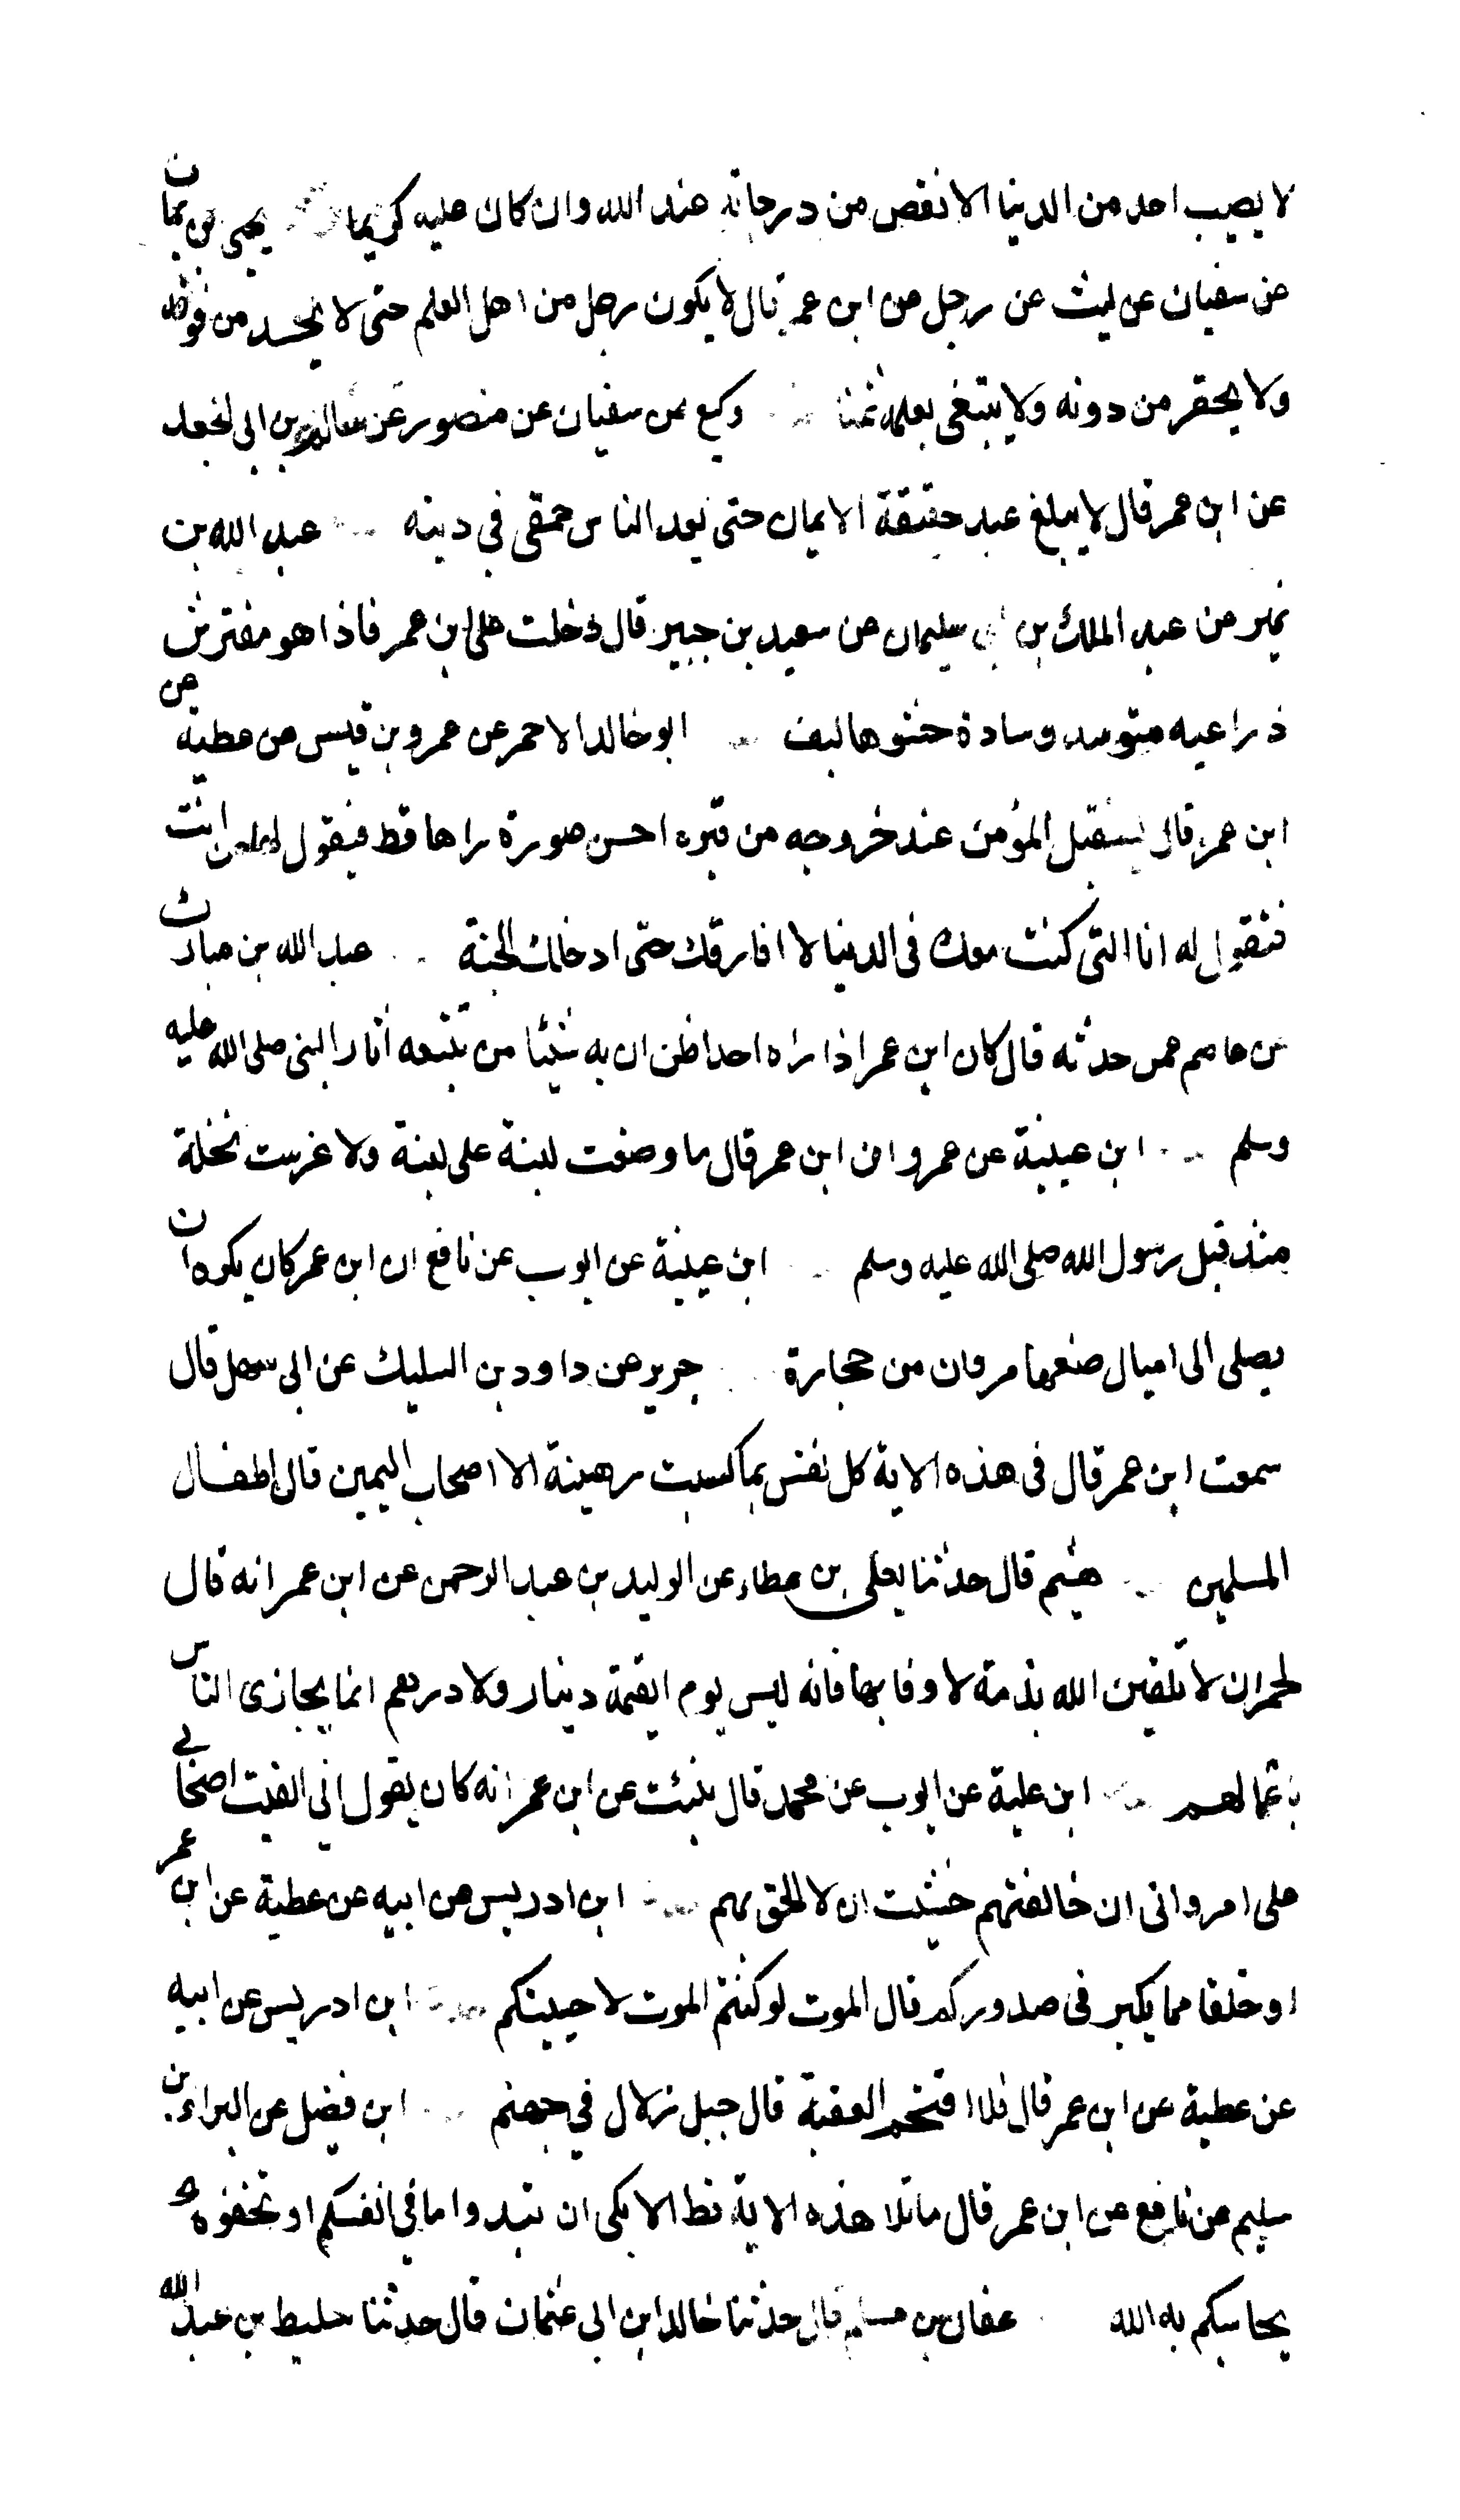 لا يصيب احد من الدنيا الا نقص من درجاته عند الله وان كان عليه كريما يحيى بن يمان
عن سفيان عن ليث عن رجل عن ابن عمر قال لا يكون رجل من اهل العلم حتى لا يحسد من فوقه
ولا يحقر من دونه ولا يبتغي بعلمه ثمنا وكيع عن سفيان عن منصور عن سالم بن ابي الجعد
عن ابن عمر قال لا يبلغ عبد حقيقة الايمان حتى يعد الناس حمقى في دينه عبد الله بن
نمير عن عبد الملك بن ابي سليمان عن سعيد بن جبير قال دخلت على ابن عمر فاذا هو مفترش
ذراعيه متوسد وسادة حشوها ليف ابو خالد الاحمر عن عمرو بن قيس عن عطية عن
ابن عمر قال يستقبل المؤمن عند خروجه من قبره احسن صورة راها قط فيقول لها من انت
فتقول له انا التي كنت معك في الدنيا لا افارقك حتى ادخلك الجنة عبد الله بن مبارك
عن عاصم عمن حدثه قال كان ابن عمر اذا راه احد اظن ان به شيئا من تتبعه آثار النبي صلى الله عليه
وسلم ابن عيينة عن عمرو ان ابن عمر قال ما وضعت لبنة على لبنة ولا غرست نخلة
منذ قبل رسول الله صلى الله عليه وسلم ابن عيينة عن ايوب عن نافع ان ابن عمر كان يكره ان
يصلي الى اميال صنعها مروان من حجارة جرير عن داود بن السليك عن ابي سهل قال
سمعت ابن عمر قال في هذه الاية كل نفس بما كسبت رهينة الا اصحاب اليمين قال اطفال
المسلمين هشيم قال حدثنا يعلى بن عطاء عن الوليد بن عبد الرحمن عن ابن عمر انه قال
لحمران لا تلقين الله بذمة لا وفا بها فانه ليس يوم القيمة دينار ولا درهم انما يجازى الناس
باعمالهم ابن علية عن ايوب عن محمد قال نبئت عن ابن عمر انه كان يقول اني الفيت اصحابي
على امر واني ان خالفتهم خشيت ان لا الحق بهم ابن ادريس عن ابيه عن عطية عن ابن عمر
او خلقا مما يكبر في صدوركم قال الموت لو كنتم الموت لاحييتكم ابن ادريس عن ابيه
عن عطية عن ابن عمر قال فلا اقتحم العقبة قال جبل زلال في جهنم ابن فضيل عن البراء بن
سليم عن نافع عن ابن عمر قال ما تلا هذه الاية قط الا بكى ان تبدوا ما في انفسكم او تخفوه
يحاسبكم به الله عفان بن مسلم قال حدثنا خالد ابن ابي عثمان قال حدثنا سليط بن عبد الله